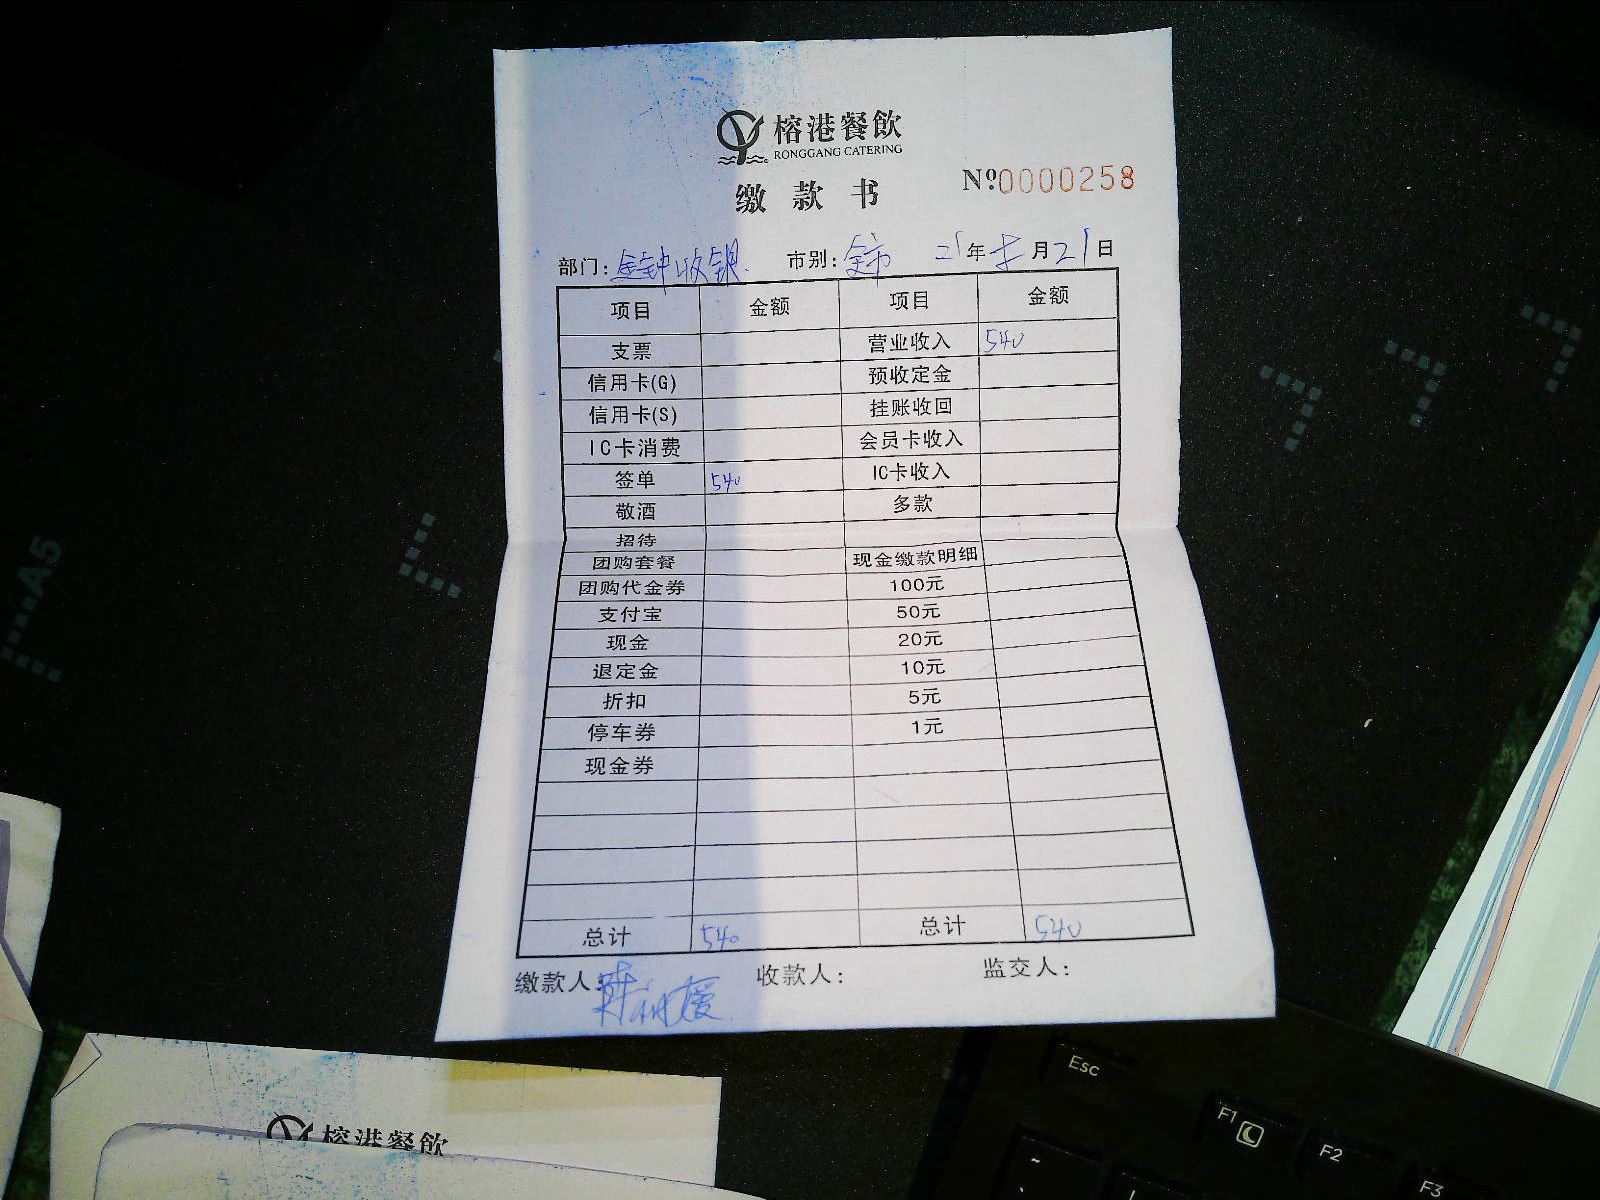 榕港餐飲
RONGGANG CATERING
缴款书
Nº0000258
部门: 金钟收银 市别: 全市 21年 月21日
项目 金额 项目 金额
支票 营业收入 540
信用卡(G) 预收定金
信用卡(S) 挂账收回
IC卡消费 会员卡收入
签单 540 IC卡收入
敬酒 多款
招待
团购套餐 现金缴款明细
团购代金券 100元
支付宝 50元
现金 20元
退定金 10元
折扣 5元
停车券 1元
现金券
总计 540 总计 540
缴款人: 收款人: 监交人:
榕港餐飲
Esc
F1
F2
F3
~
A5